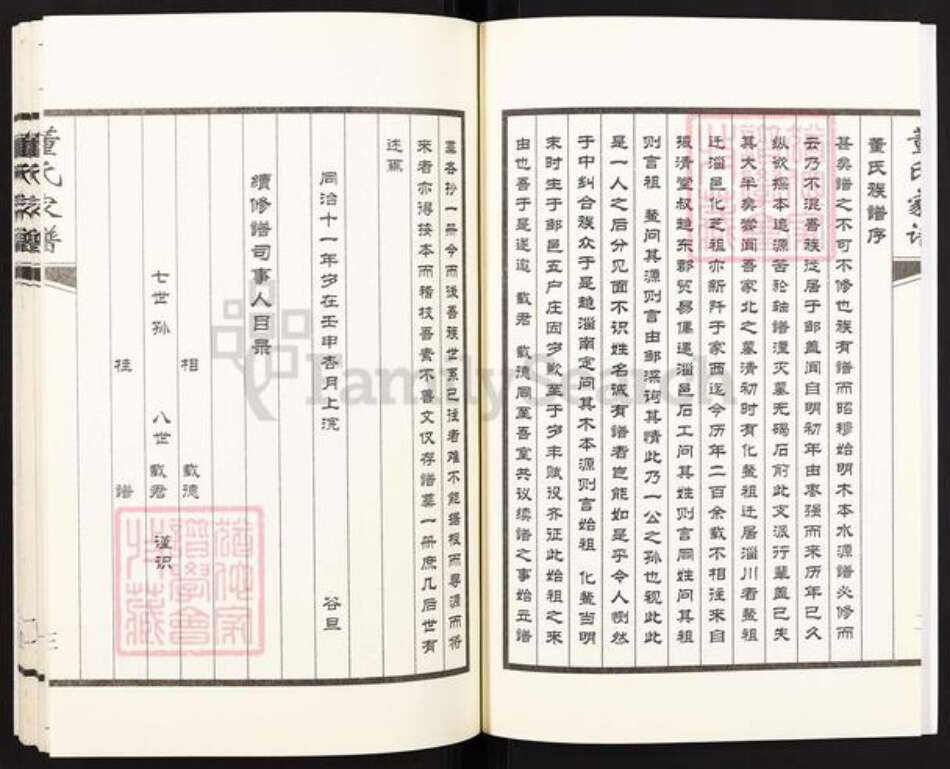 董氏族譜序
甚矣譜之不可不修也族有譜而昭穆始明木本水源譜必修而
云乃不混吾族従居于邹盖闻自明初年由枣强而来历年已久
纵欲探本追源苦於譜湮灭墓无碣石前此支派行輩盖已失
其大半矣尝闻吾家北之墓清初时有化鳌祖迁居淄川者鳌祖
迁淄邑化芝祖亦新阡于家西迄今历年二百余载不相往来自
振清堂叔趋东郡贸易偶遇淄邑石工问其姓则言同姓问其祖
则言祖 鳌问其源则言由邹梁询其情此乃一公之孙也观此此
是一人之后分见面不识姓名诚有譜者岂能如是乎令人恻然
于中纠合族众于是趋淄南定问其木本源则言始祖 化鳌当明
末时生于邹邑五户庄因岁歉至于岁丰赋役齐征此始祖之来
由也吾于是遂邀 载君 载德同至吾室共议续譜之事始立譜
各抄一册今而後吾族世系已往者难不能据根而尋源而将
来者亦得按本而稽枝吾素不善文仅存譜 一册庶几后世有
述焉
同治十一年岁在壬申杏月上浣 谷旦
續修譜司事人目录
相 载德
七世孙 八世 载君 谨识
桂 譜
董氏家譜
董氏家谱
FamilySearch